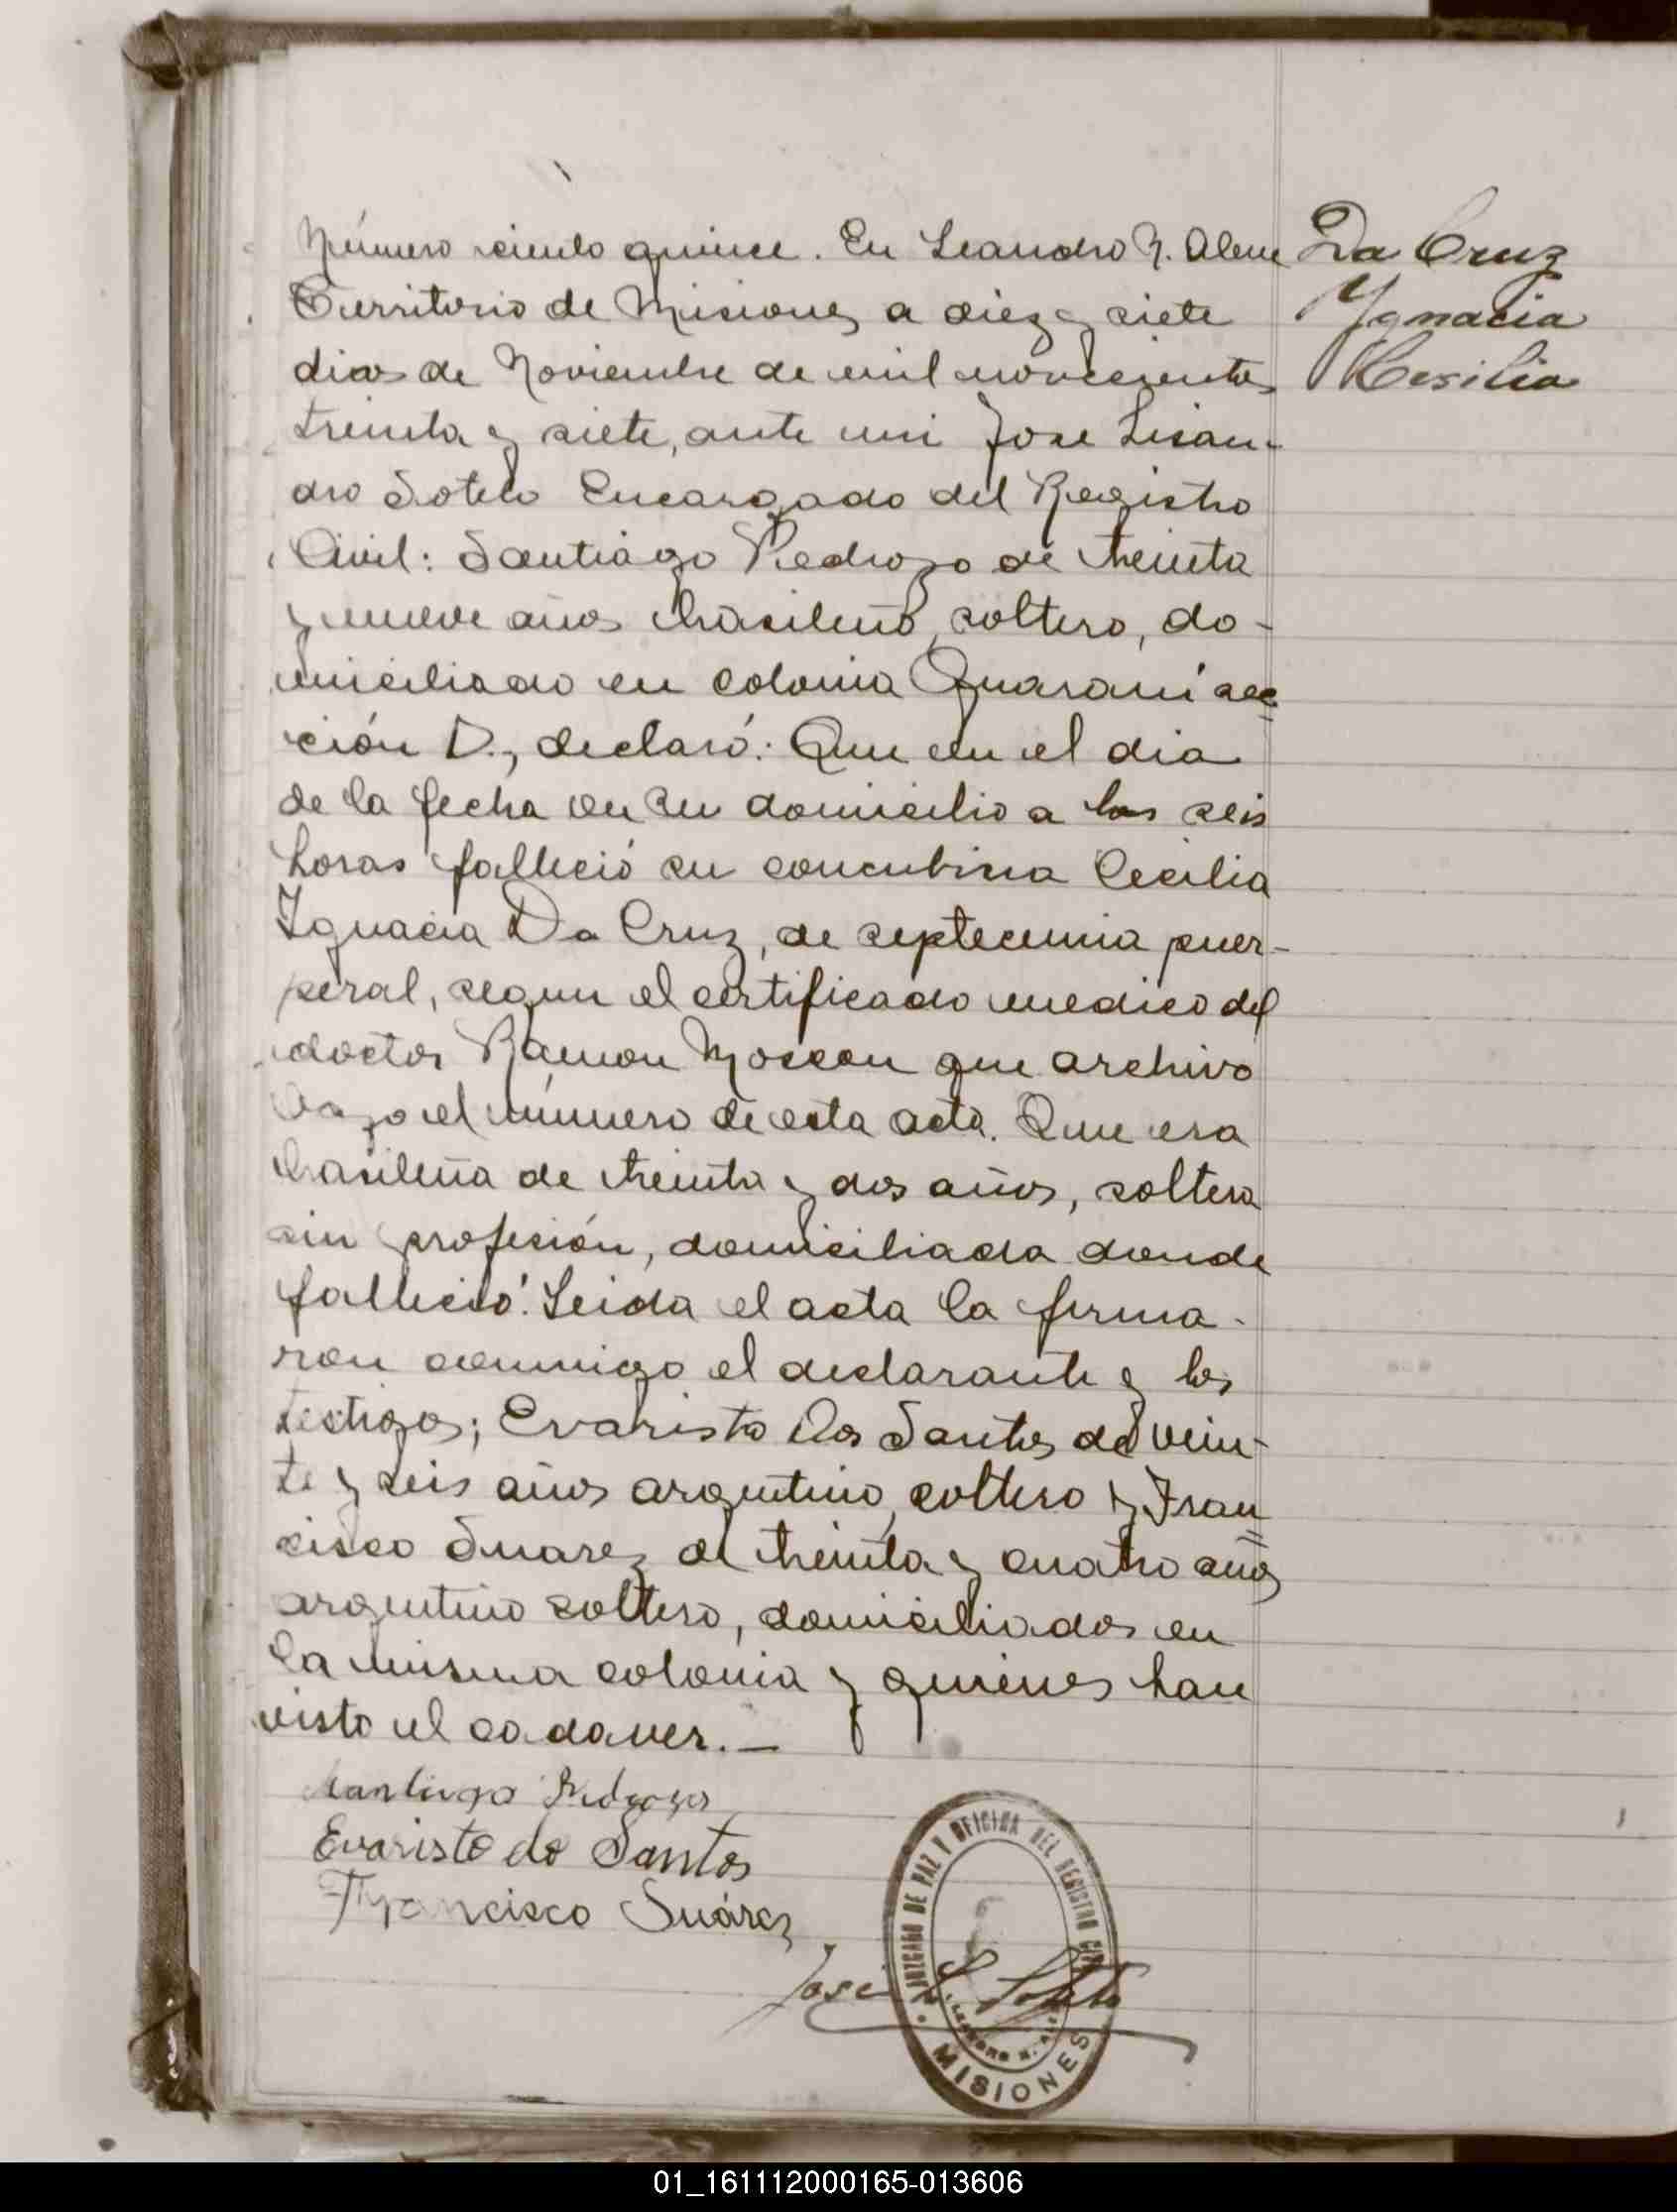 Número ciento quince. En Leandro N. Alem
Territorio de Misiones a diez y siete
dias de Noviembre de mil novecientos
treinta y siete, ante mi Jose Lisan-
dro Sotelo Encargado del Registro
Civil: Santiago Pedrozo de treinta
y nueve años brasileño, soltero, do-
miciliado en colonia Guaraní sec=
ción D., declaró: Que en el dia
de la fecha en su domicilio a las seis
horas falleció su concubina Cecilia
Ignacia Da Cruz, de septecemia puer-
peral, segun el certificado medico del
doctor Ramon Moscou que archivo
bajo el número de esta acta. Que era
brasileña de treinta y dos años, soltera
sin profesión, domiciliada donde
falleció. Leida el acta la firma-
ron conmigo el declarante y los
testigos; Evaristo Dos Santos de vein-
te y seis años argentino, soltero y Fran=
cisco Suarez de treinta y cuatro años
argentino soltero, domiciliados en
la misma colonia y quienes han
visto el cadaver.—
Da Cruz
Ygnacia
Cesilia
Santiago Pedrozo
Evaristo do Santos
Francisco Suárez
José L. Sotelo
JUZGADO DE PAZ Y OFICINA DEL REGISTRO CIVIL
LEANDRO N. ALEM
MISIONES
01_161112000165-013606